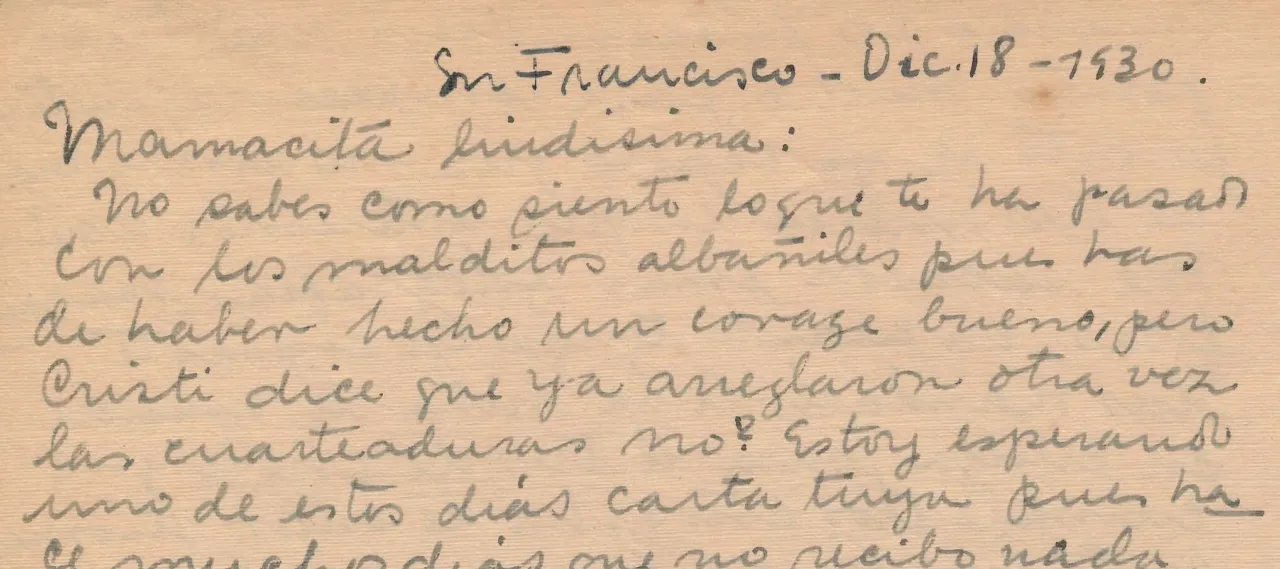 Sn Francisco - Dic. 18 - 1930.
Mamacita lindisima:
No sabes como siento loque te ha pasado
con los malditos albañiles pues has
de haber hecho un corage bueno, pero
Cristi dice que ya arreglaron otra vez
las cuarteaduras no? Estoy esperando
uno de estos días carta tuya pues ha
ce muchos días que no recibo nada